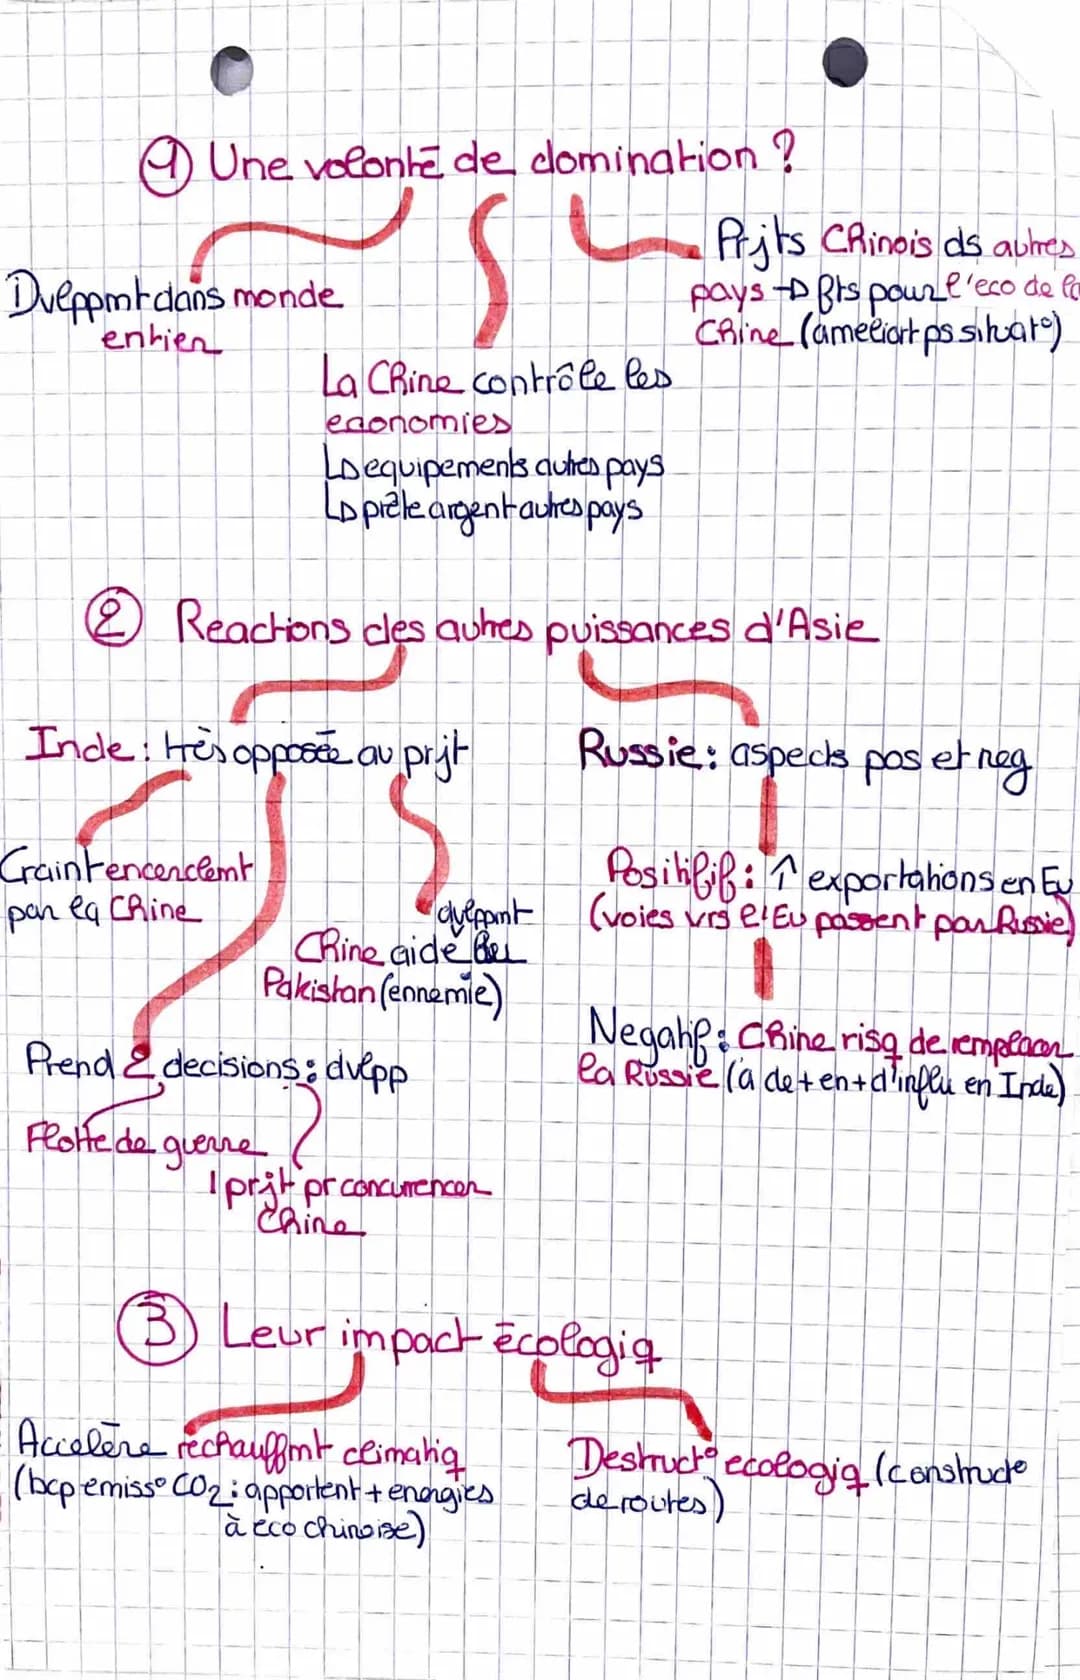 ① Une volonté de domination ?
Dvlppmt dans monde
entier
La Chine contrôle les
economies
↳ equipements autres pays
↳ prête argent autres pays
Prjts Chinois ds autres
pays → fts pour l'eco de la
Chine (ameliort ps situat°)
② Reactions des autres puissances d'Asie
Inde : très opposée au prjt
Craint encerclemt
par la Chine
dvlppmt
Chine aide
Pakistan (ennemie)
Prend 2 decisions : dvlpp
Flotte de guerre
1 prjt pr concurrencer
Chine
Russie : aspects pos et neg
Positifif : ↑ exportations en Eu
(voies vrs l'Eu passent par Russie)
Negatif : Chine risq de remplacer
la Russie (a de + en + d'influ en Inde)
③ Leur impact écologiq
Accelère rechauffmt climatiq
(bcp emiss° CO2 : apportent + energies
à eco chinoise)
Destruct° ecologiq (construct°
de routes)